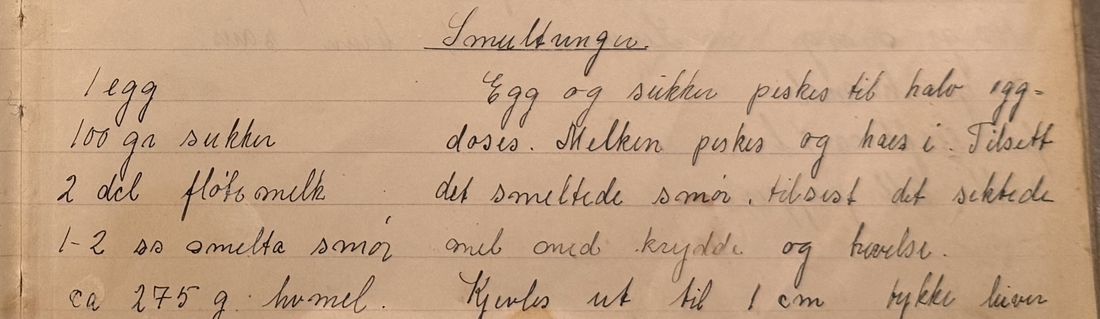 Smultringer.
1 egg
100 gr sukker
2 dcl fløtemelk
1-2 ss smelta smør
ca 275 g. hvmel.
Egg og sukker piskes til halv egg-
doses. Melken piskes og haes i. Tilsett
det smeltede smør, tilsist det siktede
mel med krydde og hevelse.
Kjevles ut til 1 cm tykke leiver